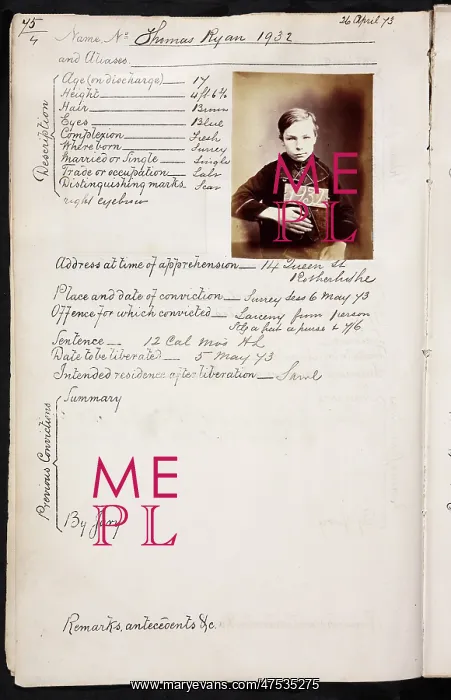 75
4
26 April 73
Name, No Thomas Ryan 1932
and Aliases.
Description
Age (on discharge) 17
Height 4 ft 6¾
Hair Brown
Eyes Blue
Complexion Fresh
Where born Surrey
Married or Single Single
Trade or occupation Labr
Distinguishing marks Scar
right eyebrow
ME
PL
Address at time of apprehension 14 Queen St
Rotherhithe
Place and date of conviction Surrey Sess 6 May 73
Offence for which convicted Larceny from Person
a purse & 7/6
Sentence 12 Cal Mos HL
Date to be liberated 5 May 73
Intended residence after liberation Same
Previous Convictions
Summary
ME
PL
By Jury
Remarks, antecedents &c.
www.maryevans.com/47535275